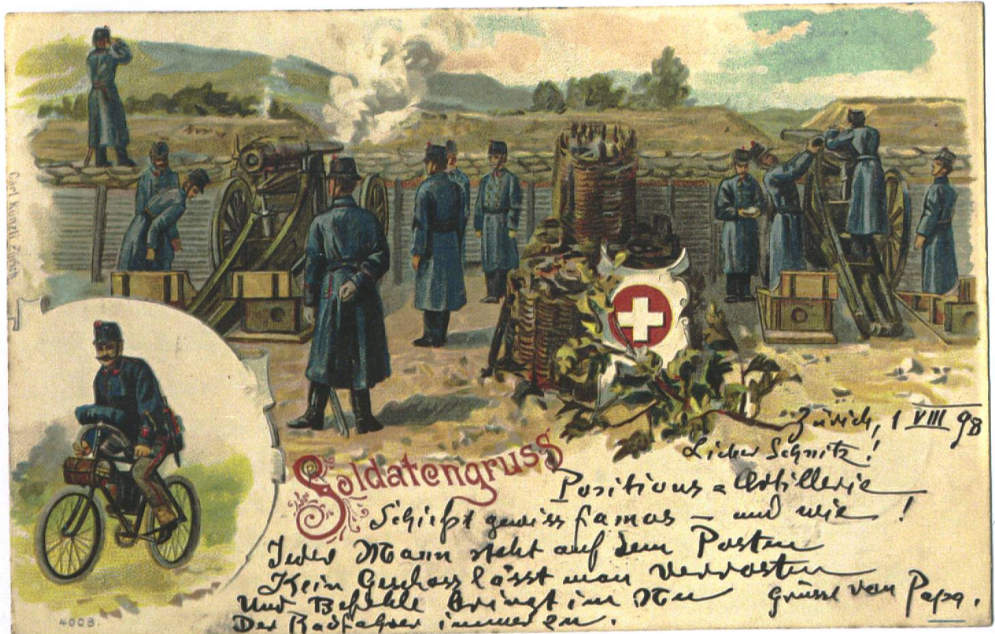 Carl Künzli, Zürich
Zürich, 1 VIII 98
Lieber Schnitz!
Soldatengruss
Positions=Artillerie
Schiesst gewiss famos – und wie!
Jeder Mann steht auf dem Posten
Kein Geschoss lässt man verrosten
Und Befehle bringt im Nu
Der Radfahrer immer
Grüsse von Papa.
4008.